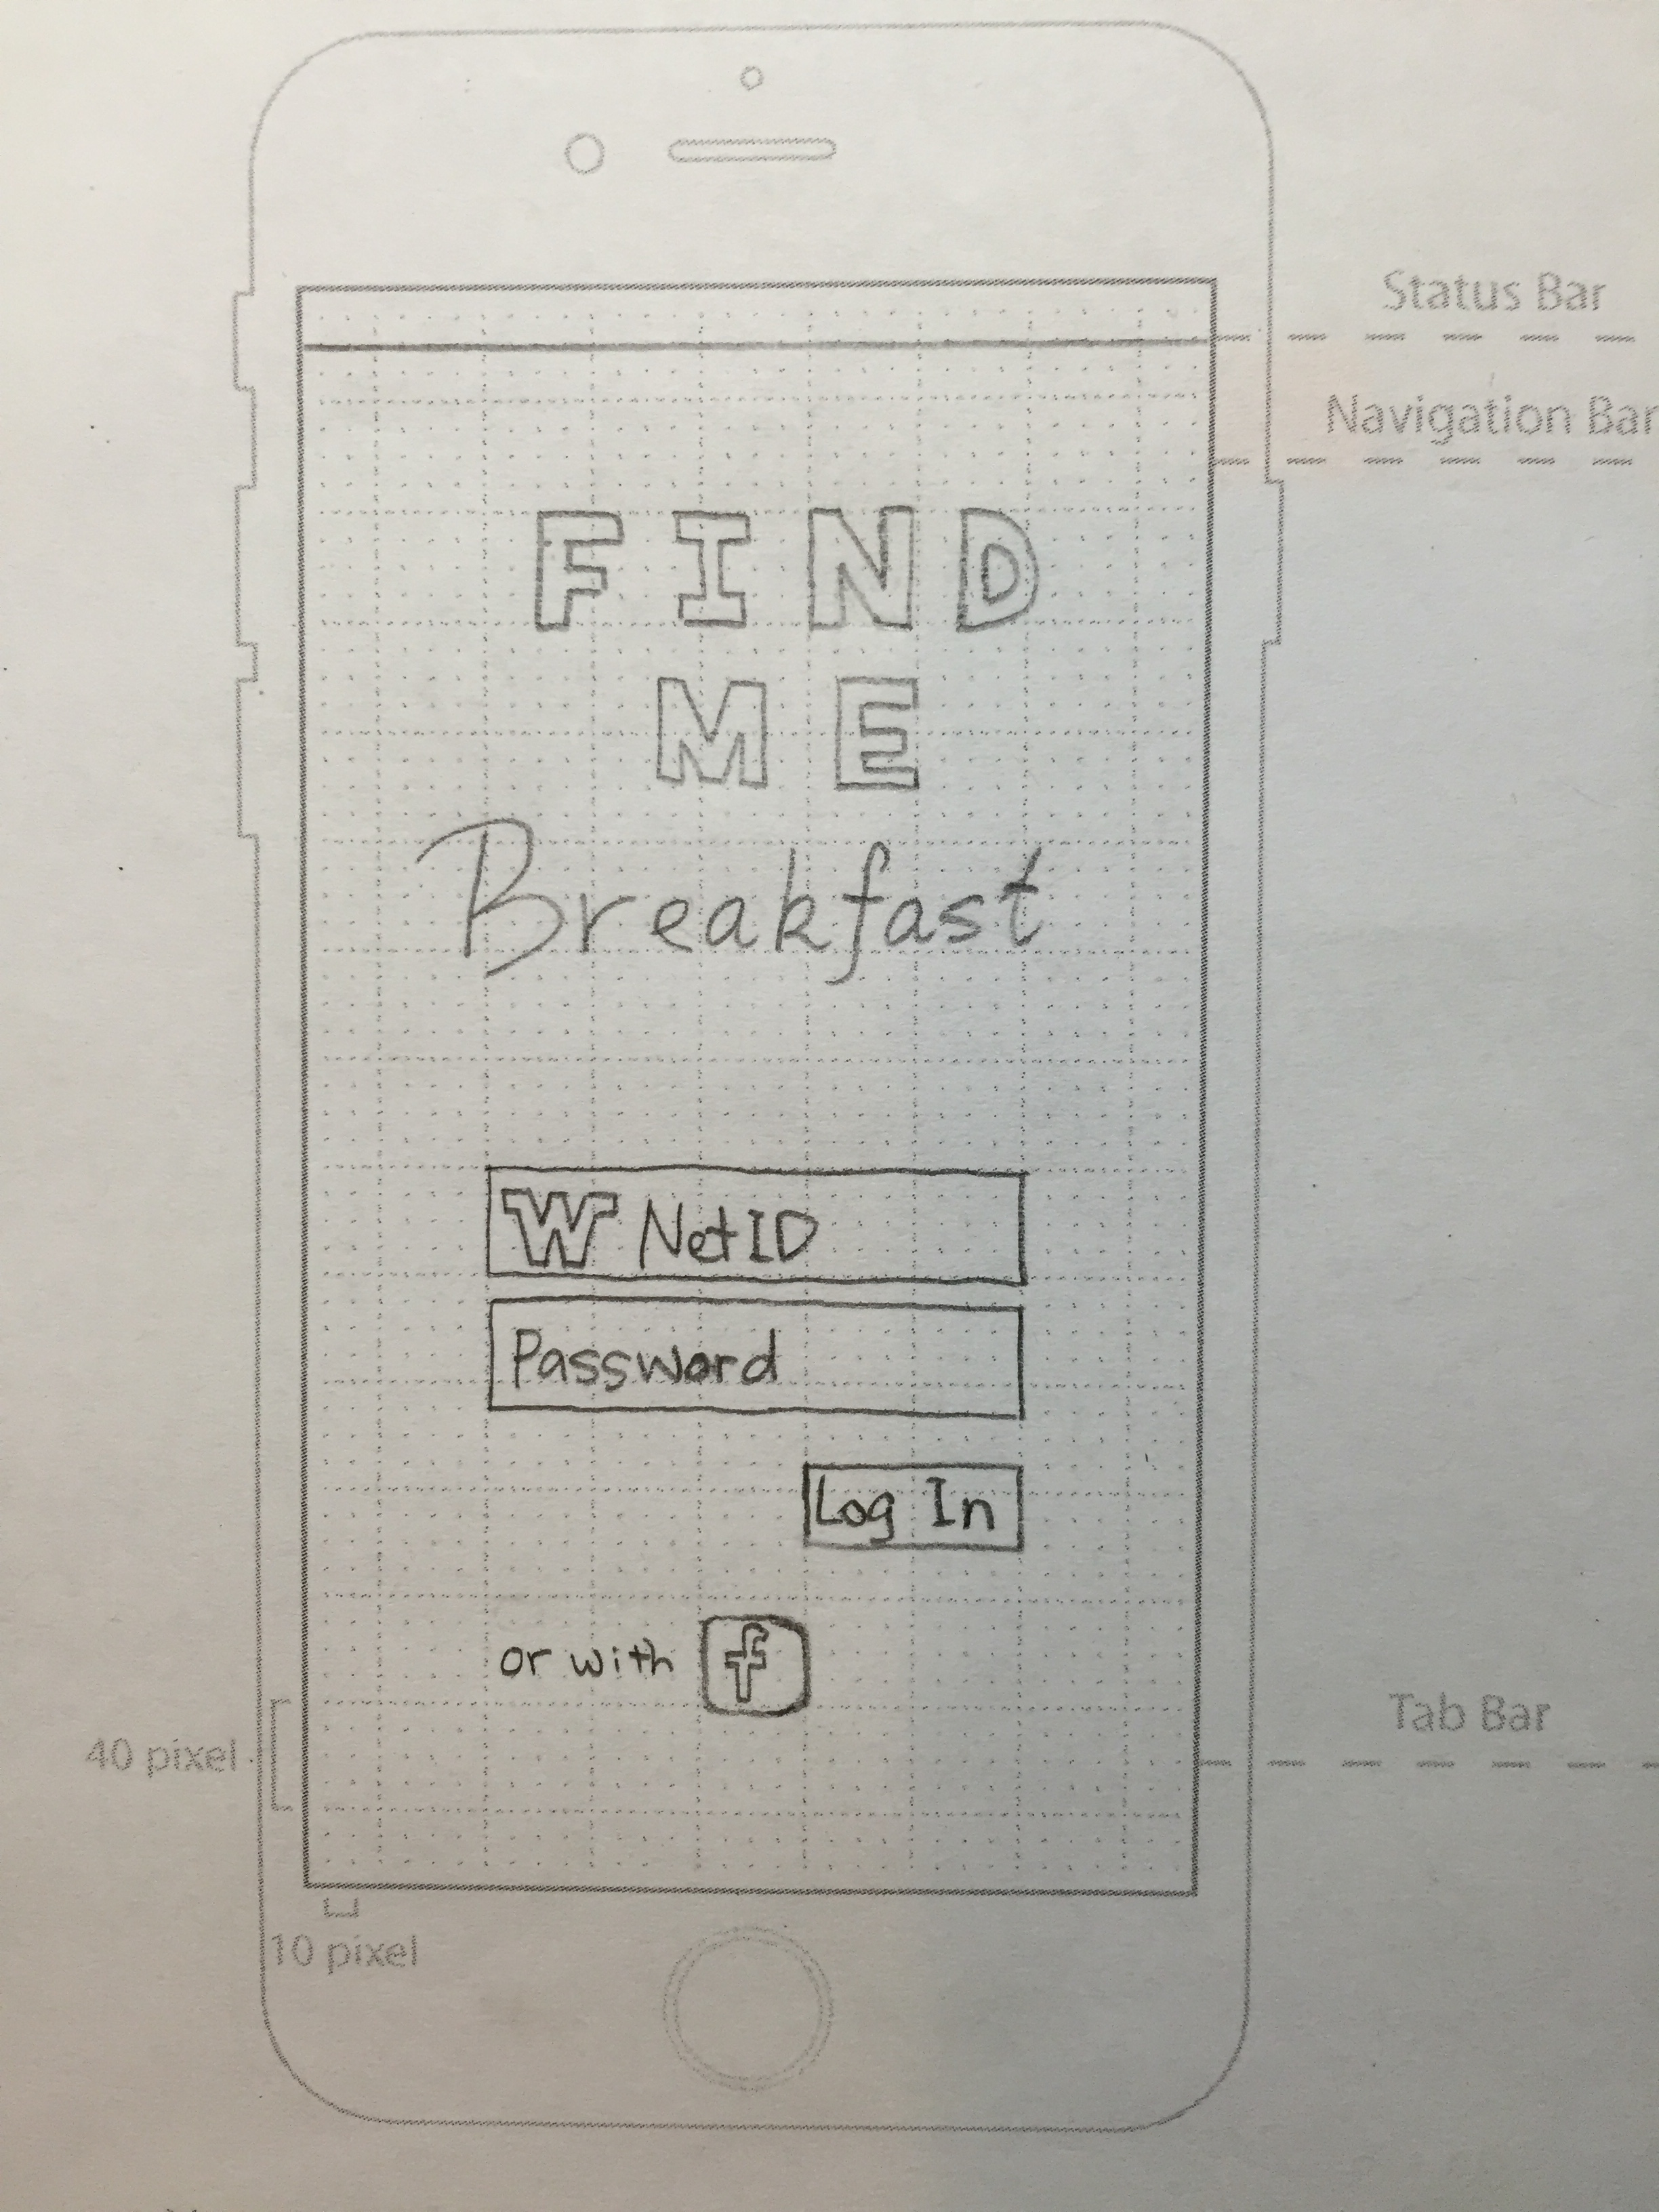 Status Bar
Navigation Bar
FIND
ME
Breakfast
W NetID
Password
Log In
or with f
Tab Bar
40 pixel
10 pixel